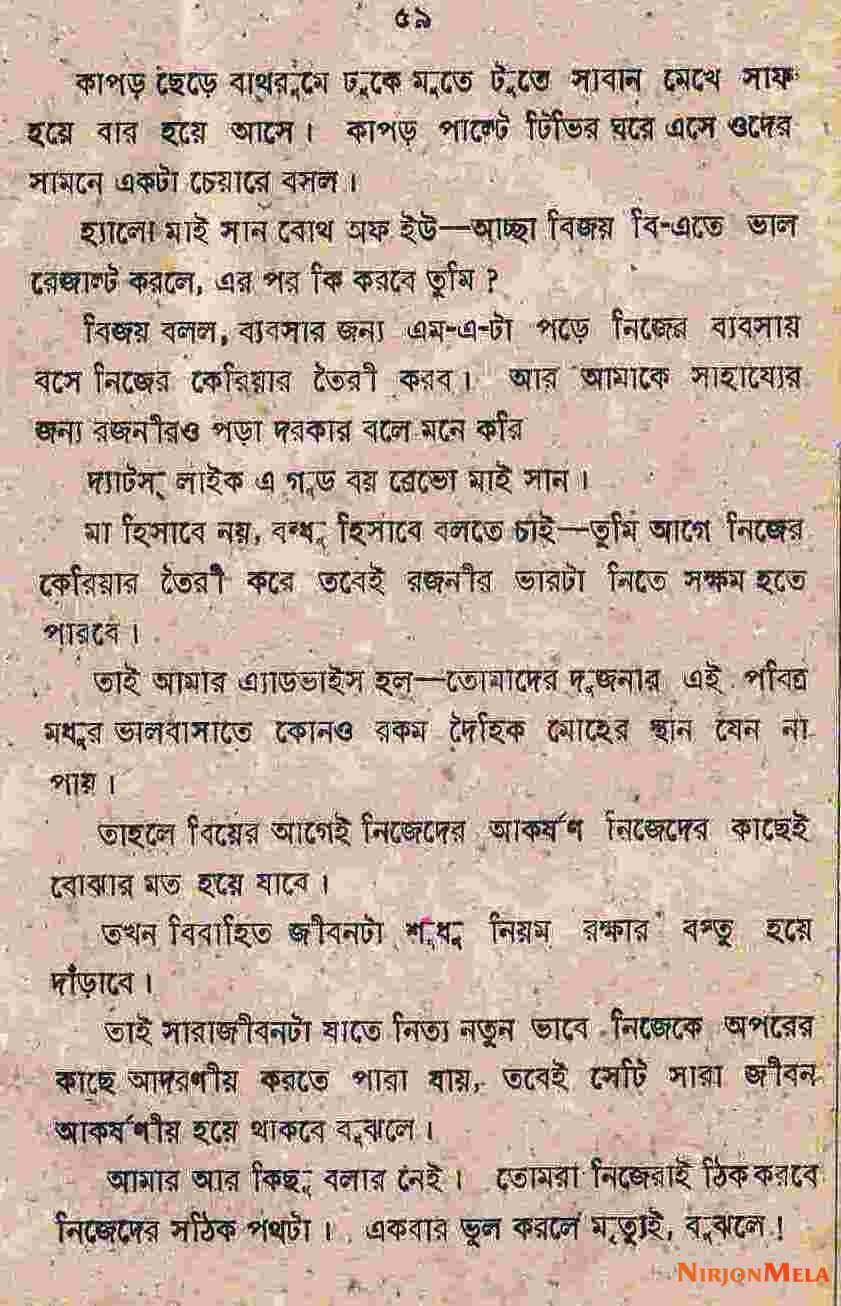 ৫৯
কাপড় ছেড়ে বাথরুমে ঢুকে মুতে টুতে সাবান মেখে সাফ
হয়ে বার হয়ে আসে। কাপড় পাল্টে টিভির ঘরে এসে ওদের
সামনে একটা চেয়ারে বসল।
হ্যালো মাই সান বোথ অফ ইউ—আচ্ছা বিজয় বি-এতে ভাল
রেজাল্ট করলে, এর পর কি করবে তুমি ?
বিজয় বলল, ব্যবসার জন্য এম-এ-টা পড়ে নিজের ব্যবসায়
বসে নিজের কেরিয়ার তৈরী করব। আর আমাকে সাহায্যের
জন্য রজনীরও পড়া দরকার বলে মনে করি
দ্যাটস্ লাইক এ গুড বয় ব্রেভো মাই সান।
মা হিসাবে নয়, বন্ধু হিসাবে বলতে চাই—তুমি আগে নিজের
কেরিয়ার তৈরী করে তবেই রজনীর ভারটা নিতে সক্ষম হতে
পারবে।
তাই আমার এ্যাডভাইস হল—তোমাদের দুজনার এই পবিত্র
মধুর ভালবাসাতে কোনও রকম দৈহিক মোহের স্থান যেন না
পায়।
তাহলে বিয়ের আগেই নিজেদের আকর্ষণ নিজেদের কাছেই
বোঝার মত হয়ে যাবে।
তখন বিবাহিত জীবনটা শুধু নিয়ম রক্ষার বস্তু হয়ে
দাঁড়াবে।
তাই সারাজীবনটা যাতে নিত্য নতুন ভাবে নিজেকে অপরের
কাছে আদরণীয় করতে পারা যায়, তবেই সেটি সারা জীবন
আকর্ষণীয় হয়ে থাকবে বুঝলে।
আমার আর কিছু বলার নেই। তোমরা নিজেরাই ঠিক করবে
নিজেদের সঠিক পথটা। একবার ভুল করলে মৃত্যুই, বুঝলে !
NIRJONMELA